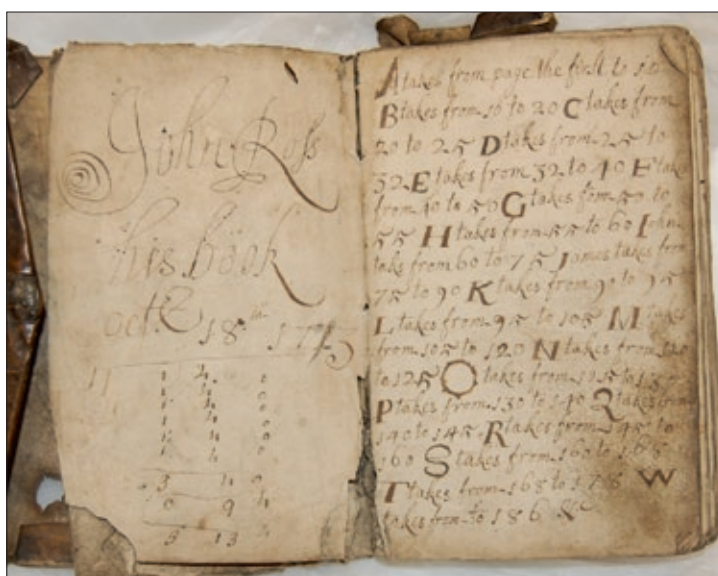 John Ross
his book
oct 18th 174
1 4 0
1 4 0
1 4 0
1 4 0
1 4 0
1 4 0
3 4 0
0 9 4
3 13 4
A takes from page the first to
B takes from 16 to 20 C takes from
20 to 25 D takes from 25 to
32 E takes from 32 to 40 F take
from 40 to 50 G takes from 50 to
55 H takes from 55 to 60 I John
taks from 60 to 75 James takes from
75 to 90 K takes from 90 to 95
L takes from 95 to 105 M takes
from 105 to 120 N takes from 120
to 125 O takes from 125 to 130
P takes from 130 to 140 Q takes from
140 to 145 R takes from 145 to
160 S takes from 160 to 168
T takes from 168 to 178 W
takes from to 186 &c